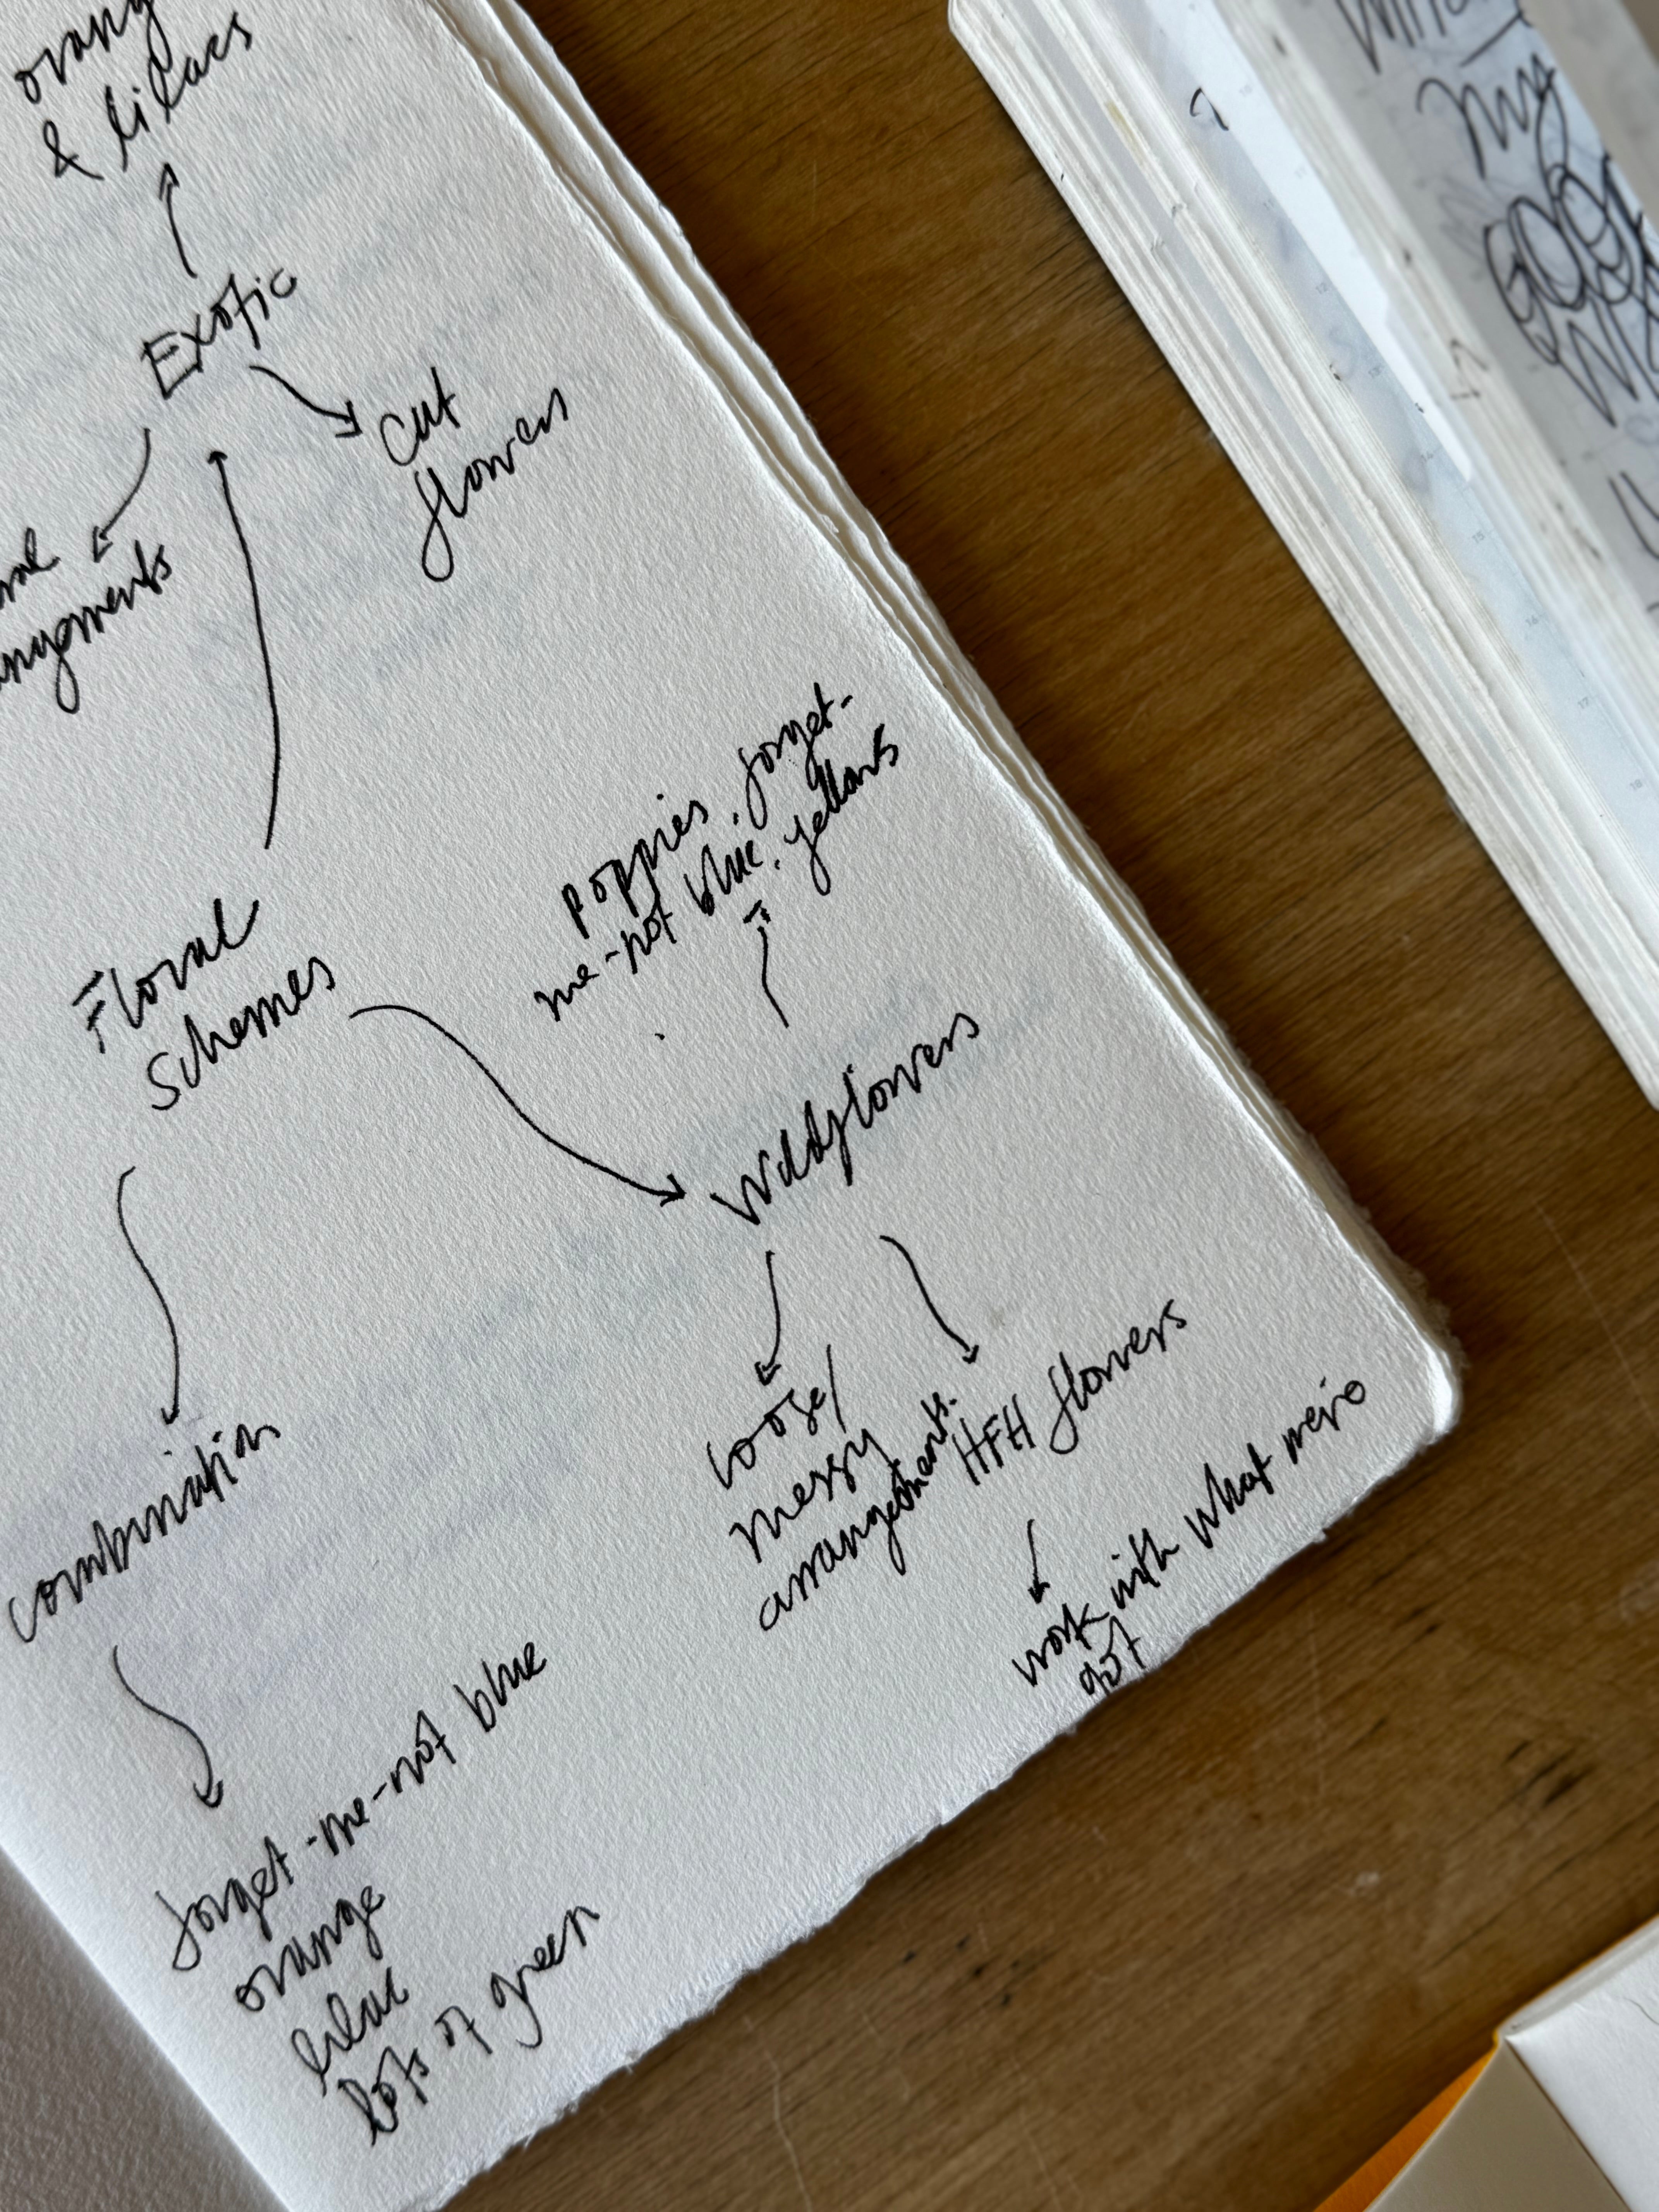 & lilacs
Exotic
cut
flowers
poppies, forget-
me-not blue, yellows
Floral
schemes
wildflowers
loose/
messy
arrangements.
HFH flowers
work with what we've
got
combination
forget-me-not blue
orange
lilac
lots of green
my